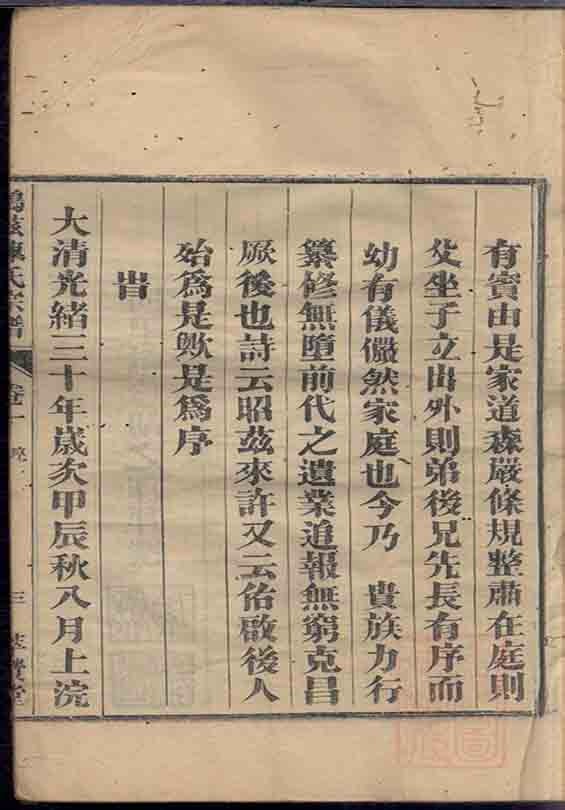 有實由是家道森嚴條規整肅在庭則
父坐子立出外則弟後兄先長有序而
幼有儀儼然家庭也今乃　貴族力行
纂修無墮前代之遺業追報無窮克昌
厥後也詩云昭茲來許又云佑啟後人
始爲是歟是爲序
旹
大清光緒三十年歲次甲辰秋八月上浣
陳氏宗譜
卷一
三